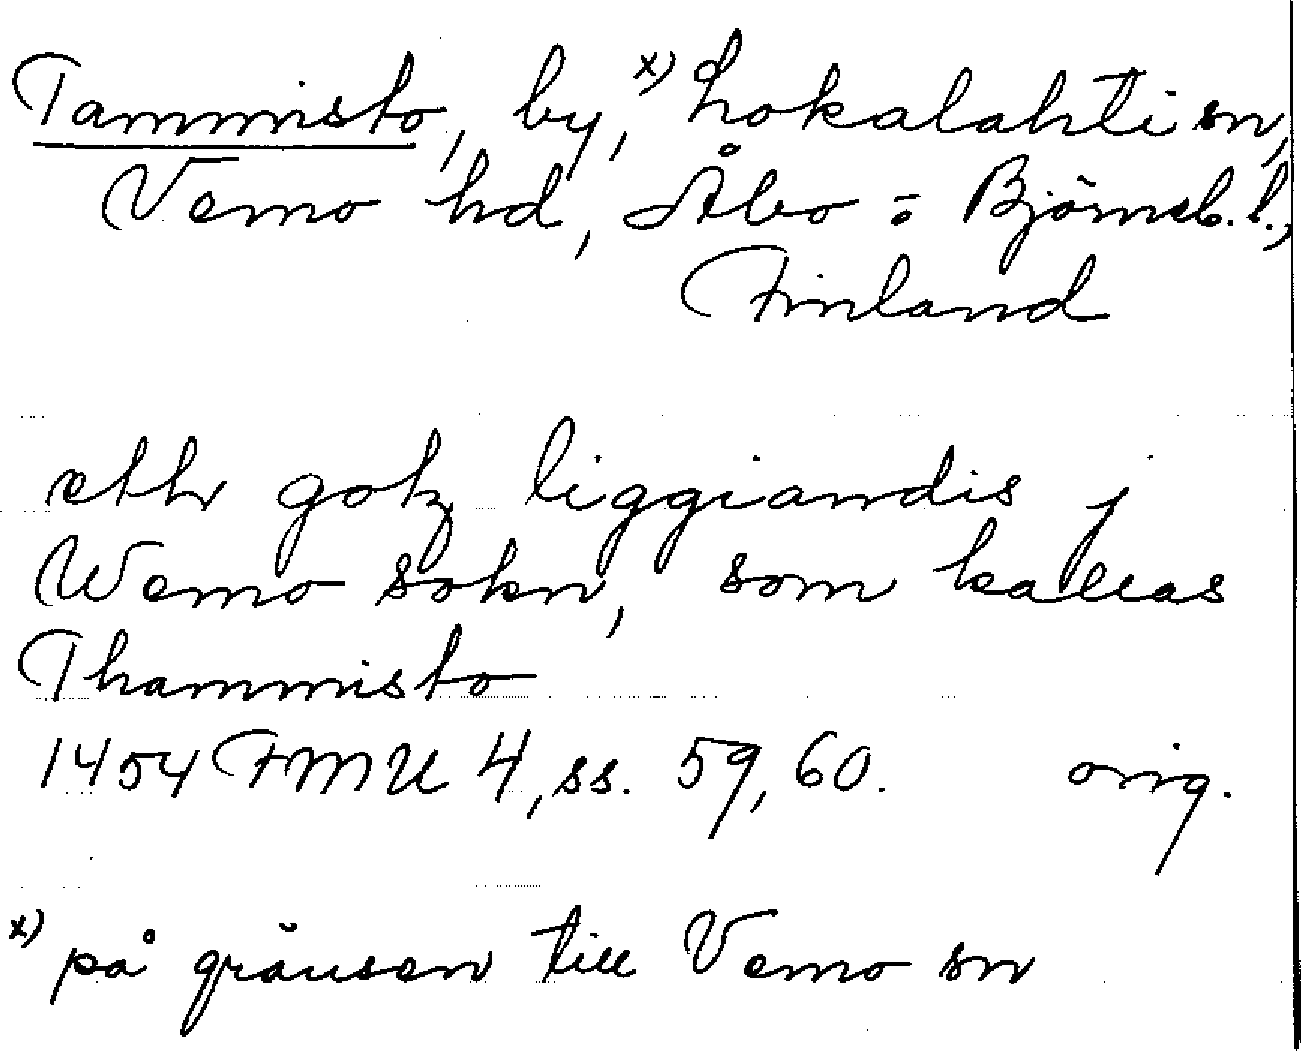 Tammisto, by, x) Lokalahti sn,
Vemo hd, Åbo = Björneb. l.,
Finland
ett gotz liggiandis j
Wemo sokn, som kallas
Thammisto
1454 FMU 4, ss. 59, 60. orig.
x) på gränsen till Vemo sn